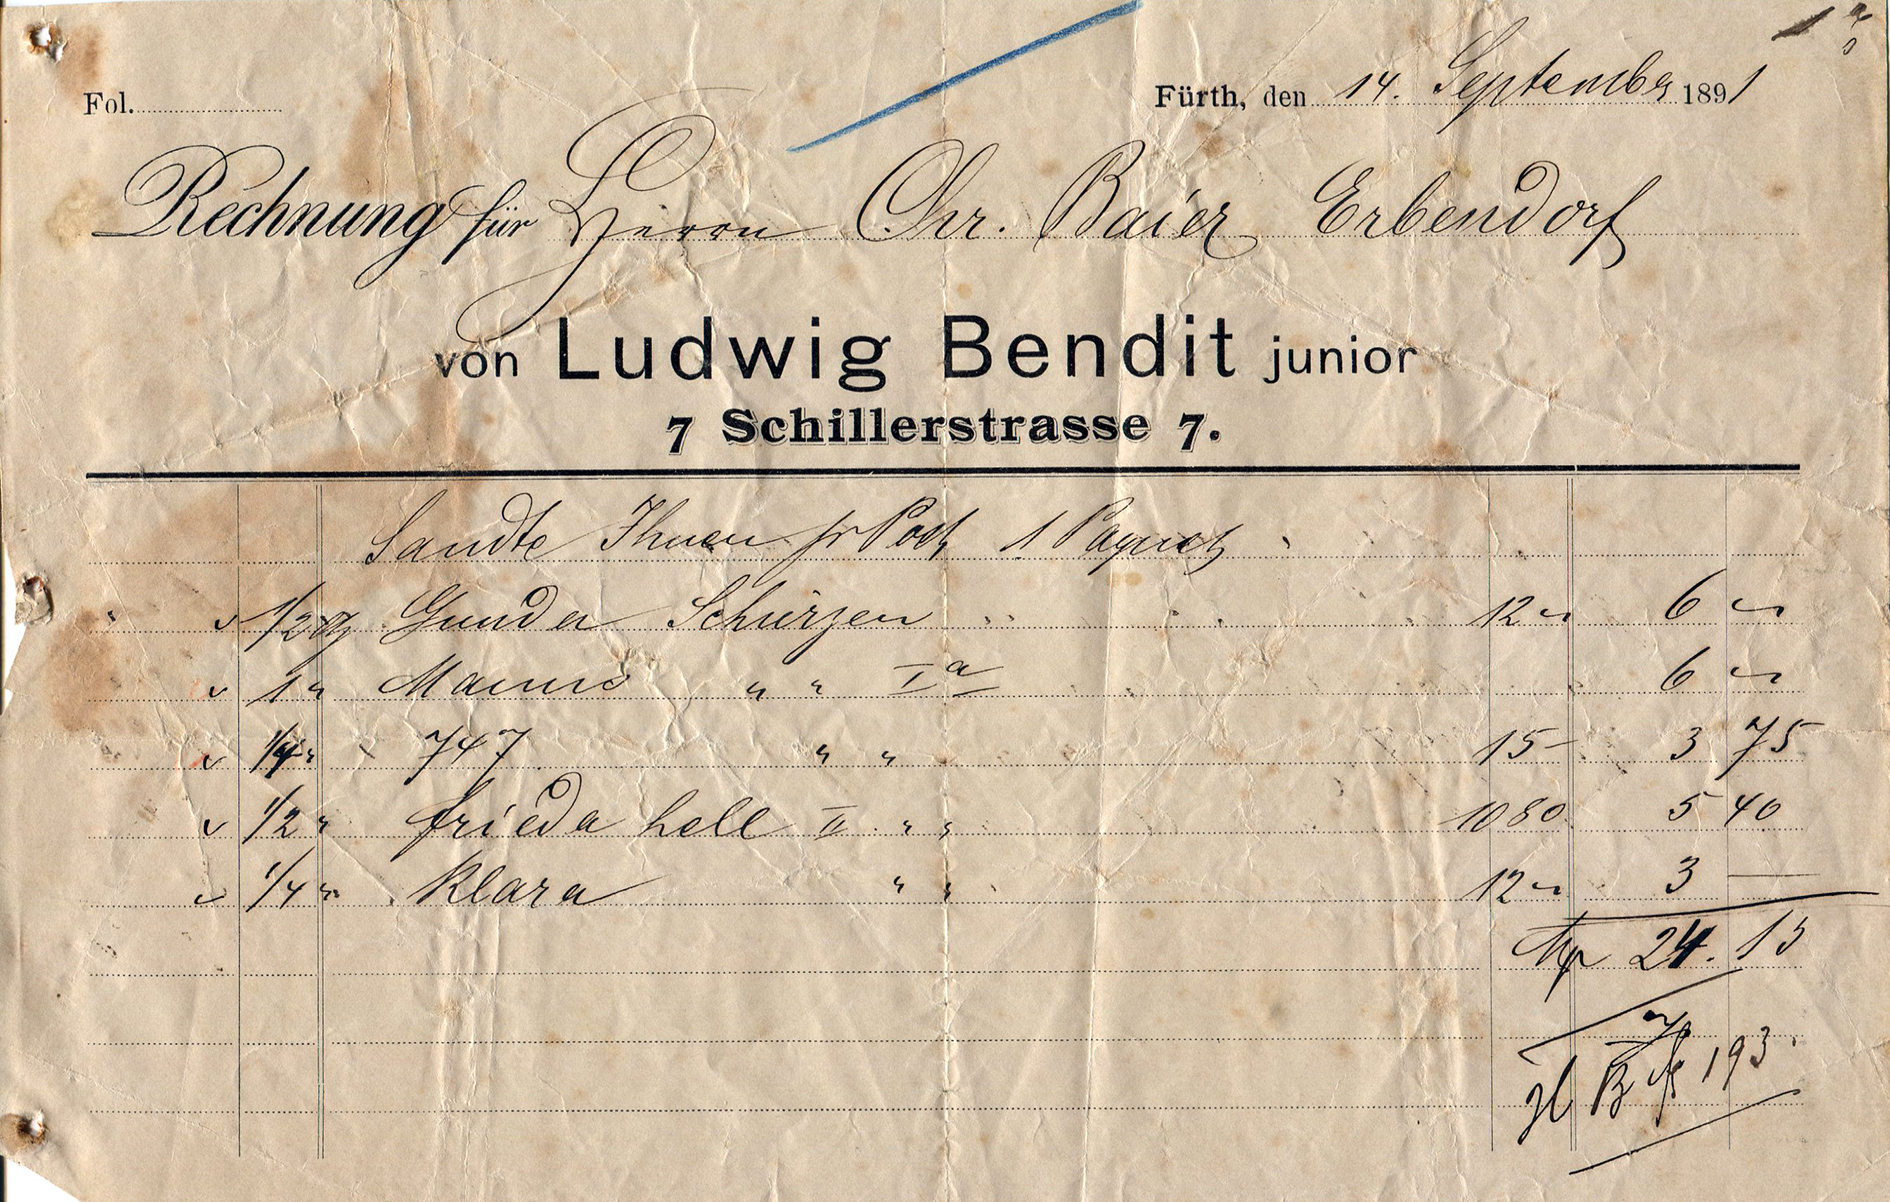 Fol.
Fürth, den 14. September 1891
Rechnung für Herrn Chr. Baier Erbendorf
von Ludwig Bendit junior
7 Schillerstrasse 7.
Sandte Ihnen pr Post 1 Paquet
1/2 Dz Gunda Schürzen 12 6
1 " " " Ia 6
1/4 " 747 " " 15 3 75
1/2 " frieda hell II " " 10 80 5 40
1/4 " Klara " " 12 3 —
24. 15
193